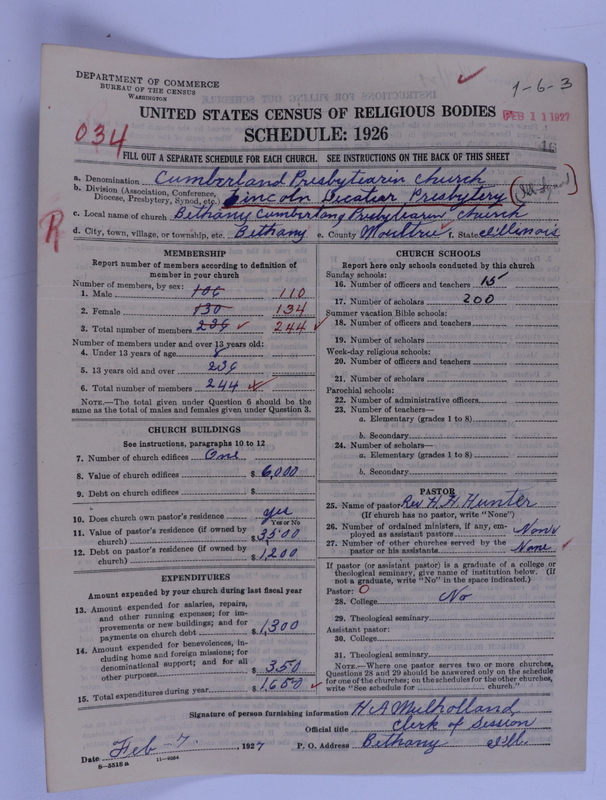 DEPARTMENT OF COMMERCE
BUREAU OF THE CENSUS
WASHINGTON
1-6-3
UNITED STATES CENSUS OF RELIGIOUS BODIES
FEB 11 1927
034
SCHEDULE: 1926
16
FILL OUT A SEPARATE SCHEDULE FOR EACH CHURCH. SEE INSTRUCTIONS ON THE BACK OF THIS SHEET
a. Denomination Cumberland Presbyterin Church
b. Division (Association, Conference, Diocese, Presbytery, Synod, etc.) Lincoln Decatur Presbytery
c. Local name of church Bethany Cumberland Presbyterin Church
R
d. City, town, village, or township, etc. Bethany e. County Moultrie f. State Illinois
MEMBERSHIP
Report number of members according to definition of
member in your church
Number of members, by sex:
1. Male 106 110
2. Female 130 134
3. Total number of members 236 244
Number of members under and over 13 years old:
4. Under 13 years of age 8
5. 13 years old and over 236
6. Total number of members 244
NOTE.—The total given under Question 6 should be
same as the total of males and females given under Question 3.
CHURCH BUILDINGS
See instructions, paragraphs 10 to 12
7. Number of church edifices One
8. Value of church edifices $ 6,000
9. Debt on church edifices $
10. Does church own pastor's residence yes
Yes or No
11. Value of pastor's residence (if owned by
church) $ 3500
12. Debt on pastor's residence (if owned by
church) $ 1,200
EXPENDITURES
Amount expended by your church during last fiscal year
13. Amount expended for salaries, repairs,
and other running expenses; for im-
provements or new buildings; and for
payments on church debt $ 1,300
14. Amount expended for benevolences, in-
cluding home and foreign missions; for
denominational support; and for all
other purposes $ 350
15. Total expenditures during year $ 1,650
CHURCH SCHOOLS
Report here only schools conducted by this church
Sunday schools:
16. Number of officers and teachers 15
17. Number of scholars 200
Summer vacation Bible schools:
18. Number of officers and teachers
19. Number of scholars
Week-day religious schools:
20. Number of officers and teachers
21. Number of scholars
Parochial schools:
22. Number of administrative officers
23. Number of teachers—
a. Elementary (grades 1 to 8)
b. Secondary
24. Number of scholars—
a. Elementary (grades 1 to 8)
b. Secondary
PASTOR
25. Name of pastor Rev. H. H. Hunter
(If church has no pastor, write "None")
26. Number of ordained ministers, if any, em-
ployed as assistant pastors None
27. Number of other churches served by the
pastor or his assistants None
If pastor (or assistant pastor) is a graduate of a college or
theological seminary, give name of institution below. (If
not a graduate, write "No" in the space indicated.)
Pastor: 0
28. College No
29. Theological seminary
Assistant pastor:
30. College
31. Theological seminary
NOTE.—Where one pastor serves two or more churches,
Questions 28 and 29 should be answered only on the schedule
for one of the churches; on the schedules for the other churches,
write "See schedule for church."
Signature of person furnishing information H A Mulholland
Official title Clerk of Session
Date Feb-7, 1927 P. O. Address Bethany Ill.
8-551E a 11-9054